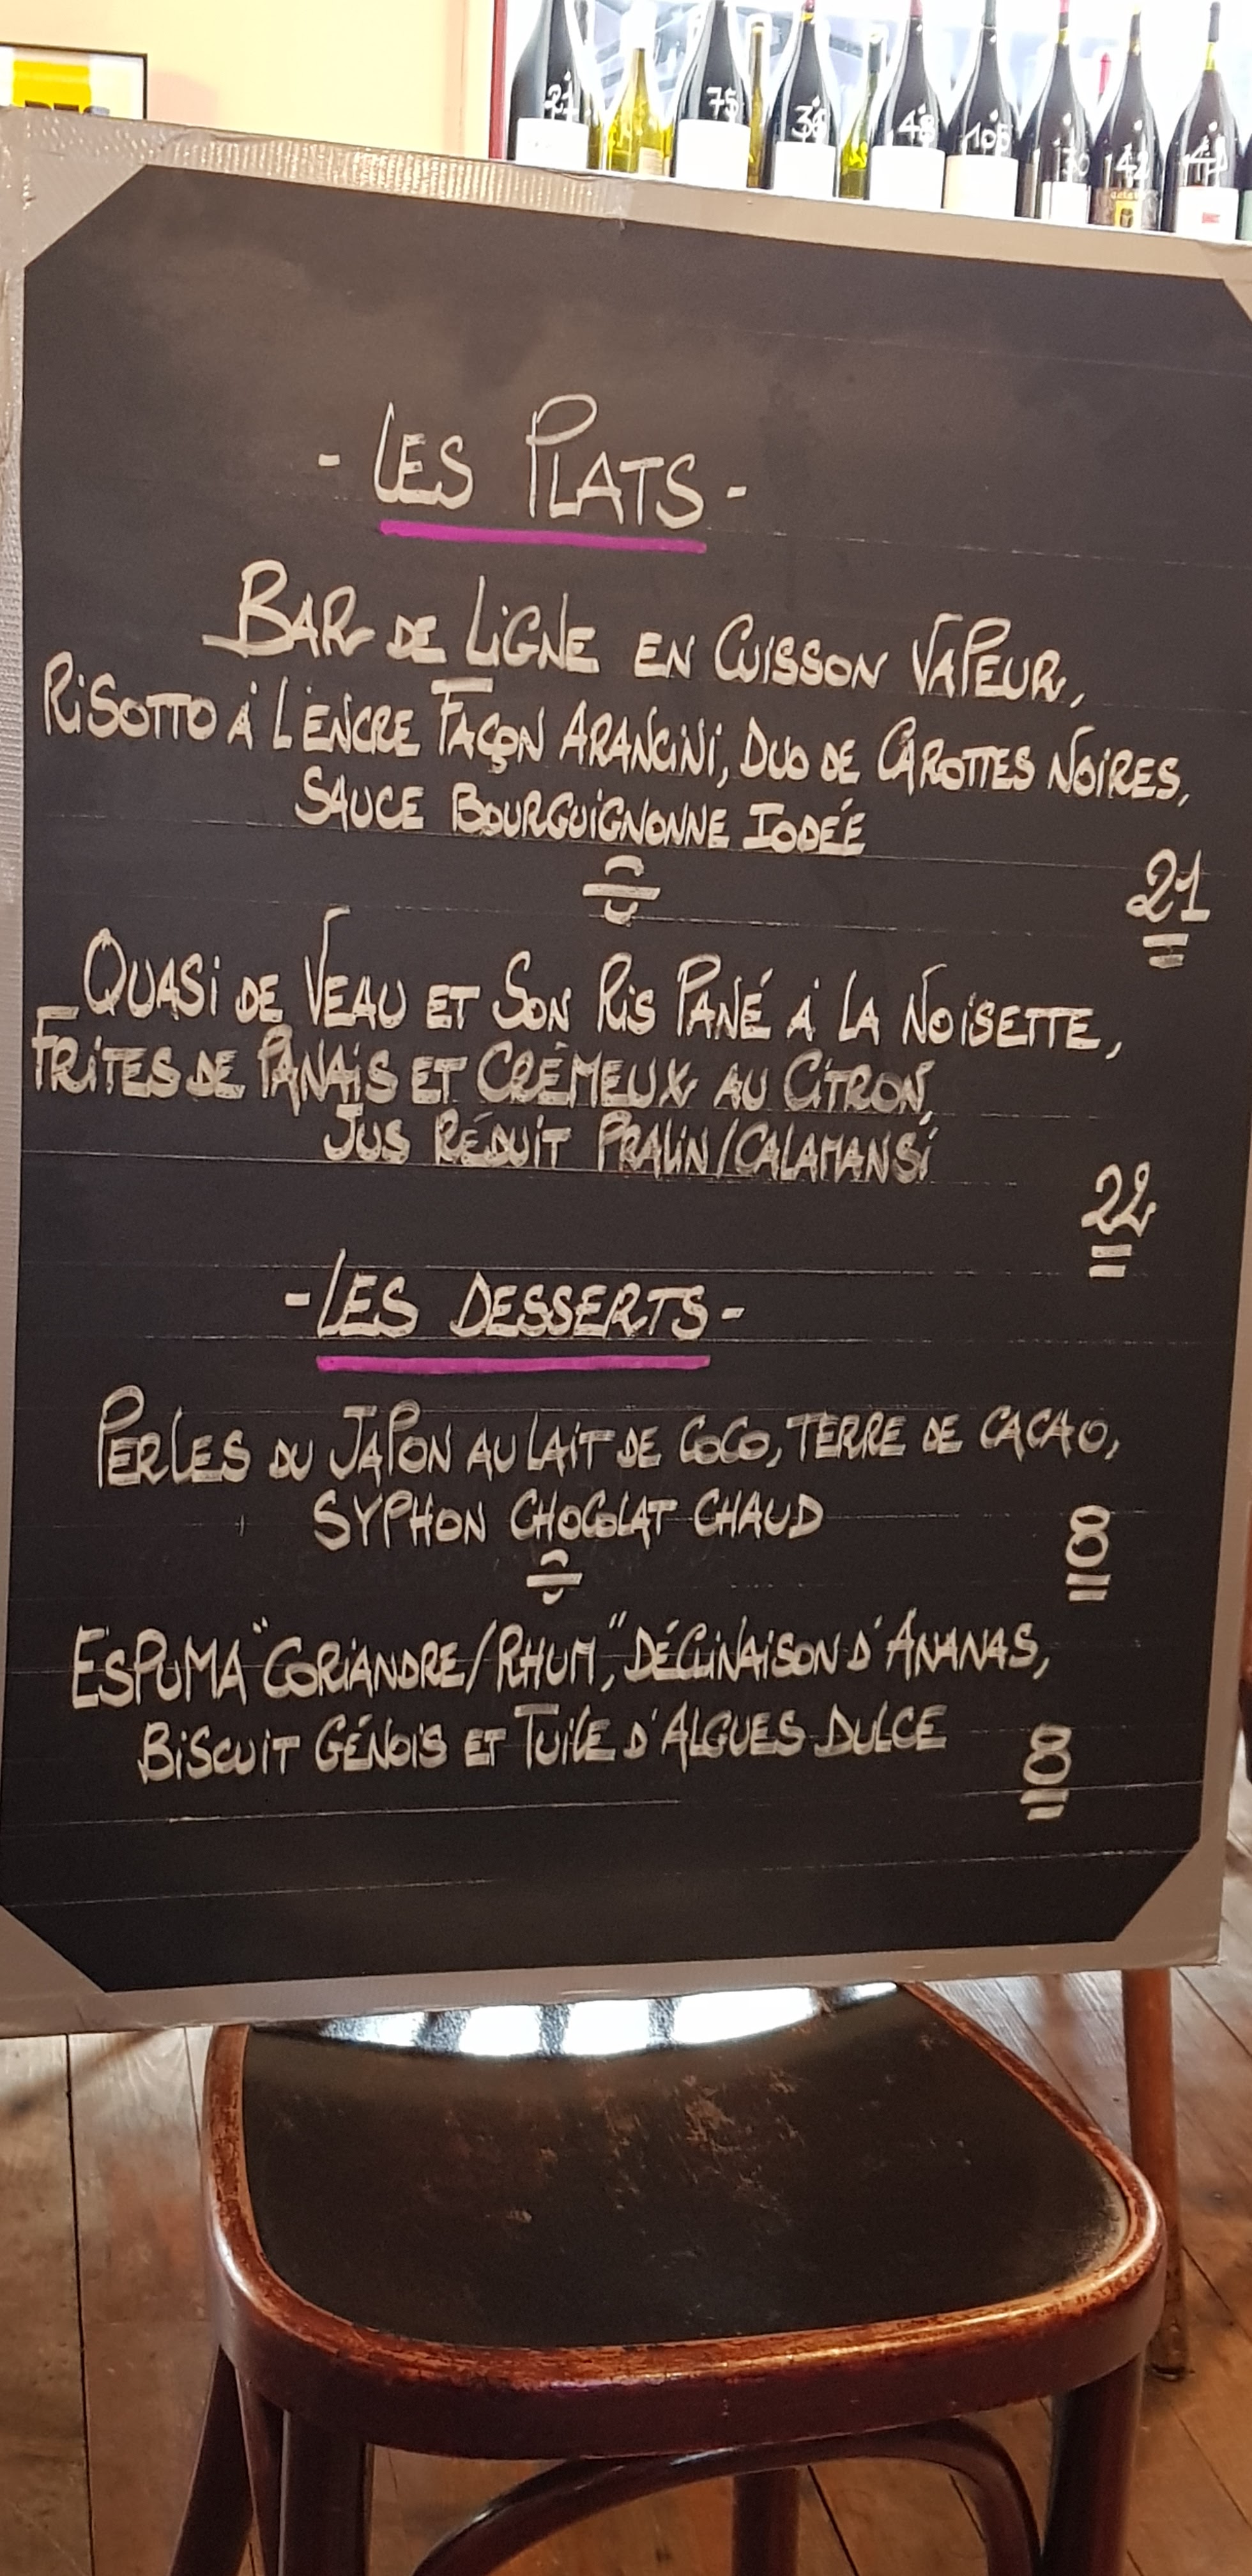 21
75
36
48
105
30
142
- LES PLATS -
BAR DE LIGNE EN CUISSON VAPEUR,
RISOTTO À L'ENCRE FAÇON ARANCINI, DUO DE CAROTTES NOIRES,
SAUCE BOURGUIGNONNE IODÉE
21
QUASI DE VEAU ET SON RIS PANÉ À LA NOISETTE,
FRITES DE PANAIS ET CRÉMEUX AU CITRON,
JUS RÉDUIT PRALIN/CALAMANSI
22
- LES DESSERTS -
PERLES DU JAPON AU LAIT DE COCO, TERRE DE CACAO,
SYPHON CHOCOLAT CHAUD
8
ESPUMA "CORIANDRE/RHUM", DÉCLINAISON D'ANANAS,
BISCUIT GÉNOIS ET TUILE D'ALGUES DULCE
8